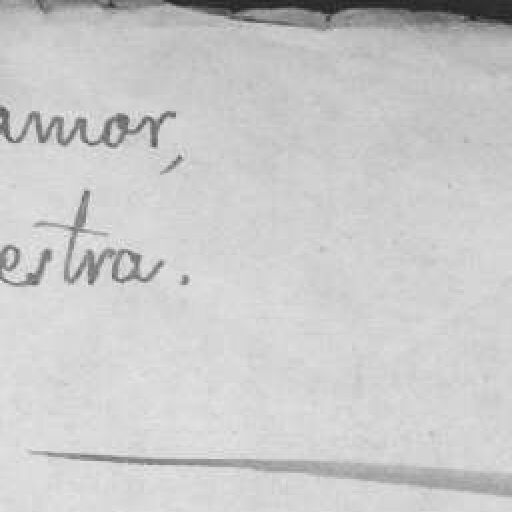 amor,
estra.